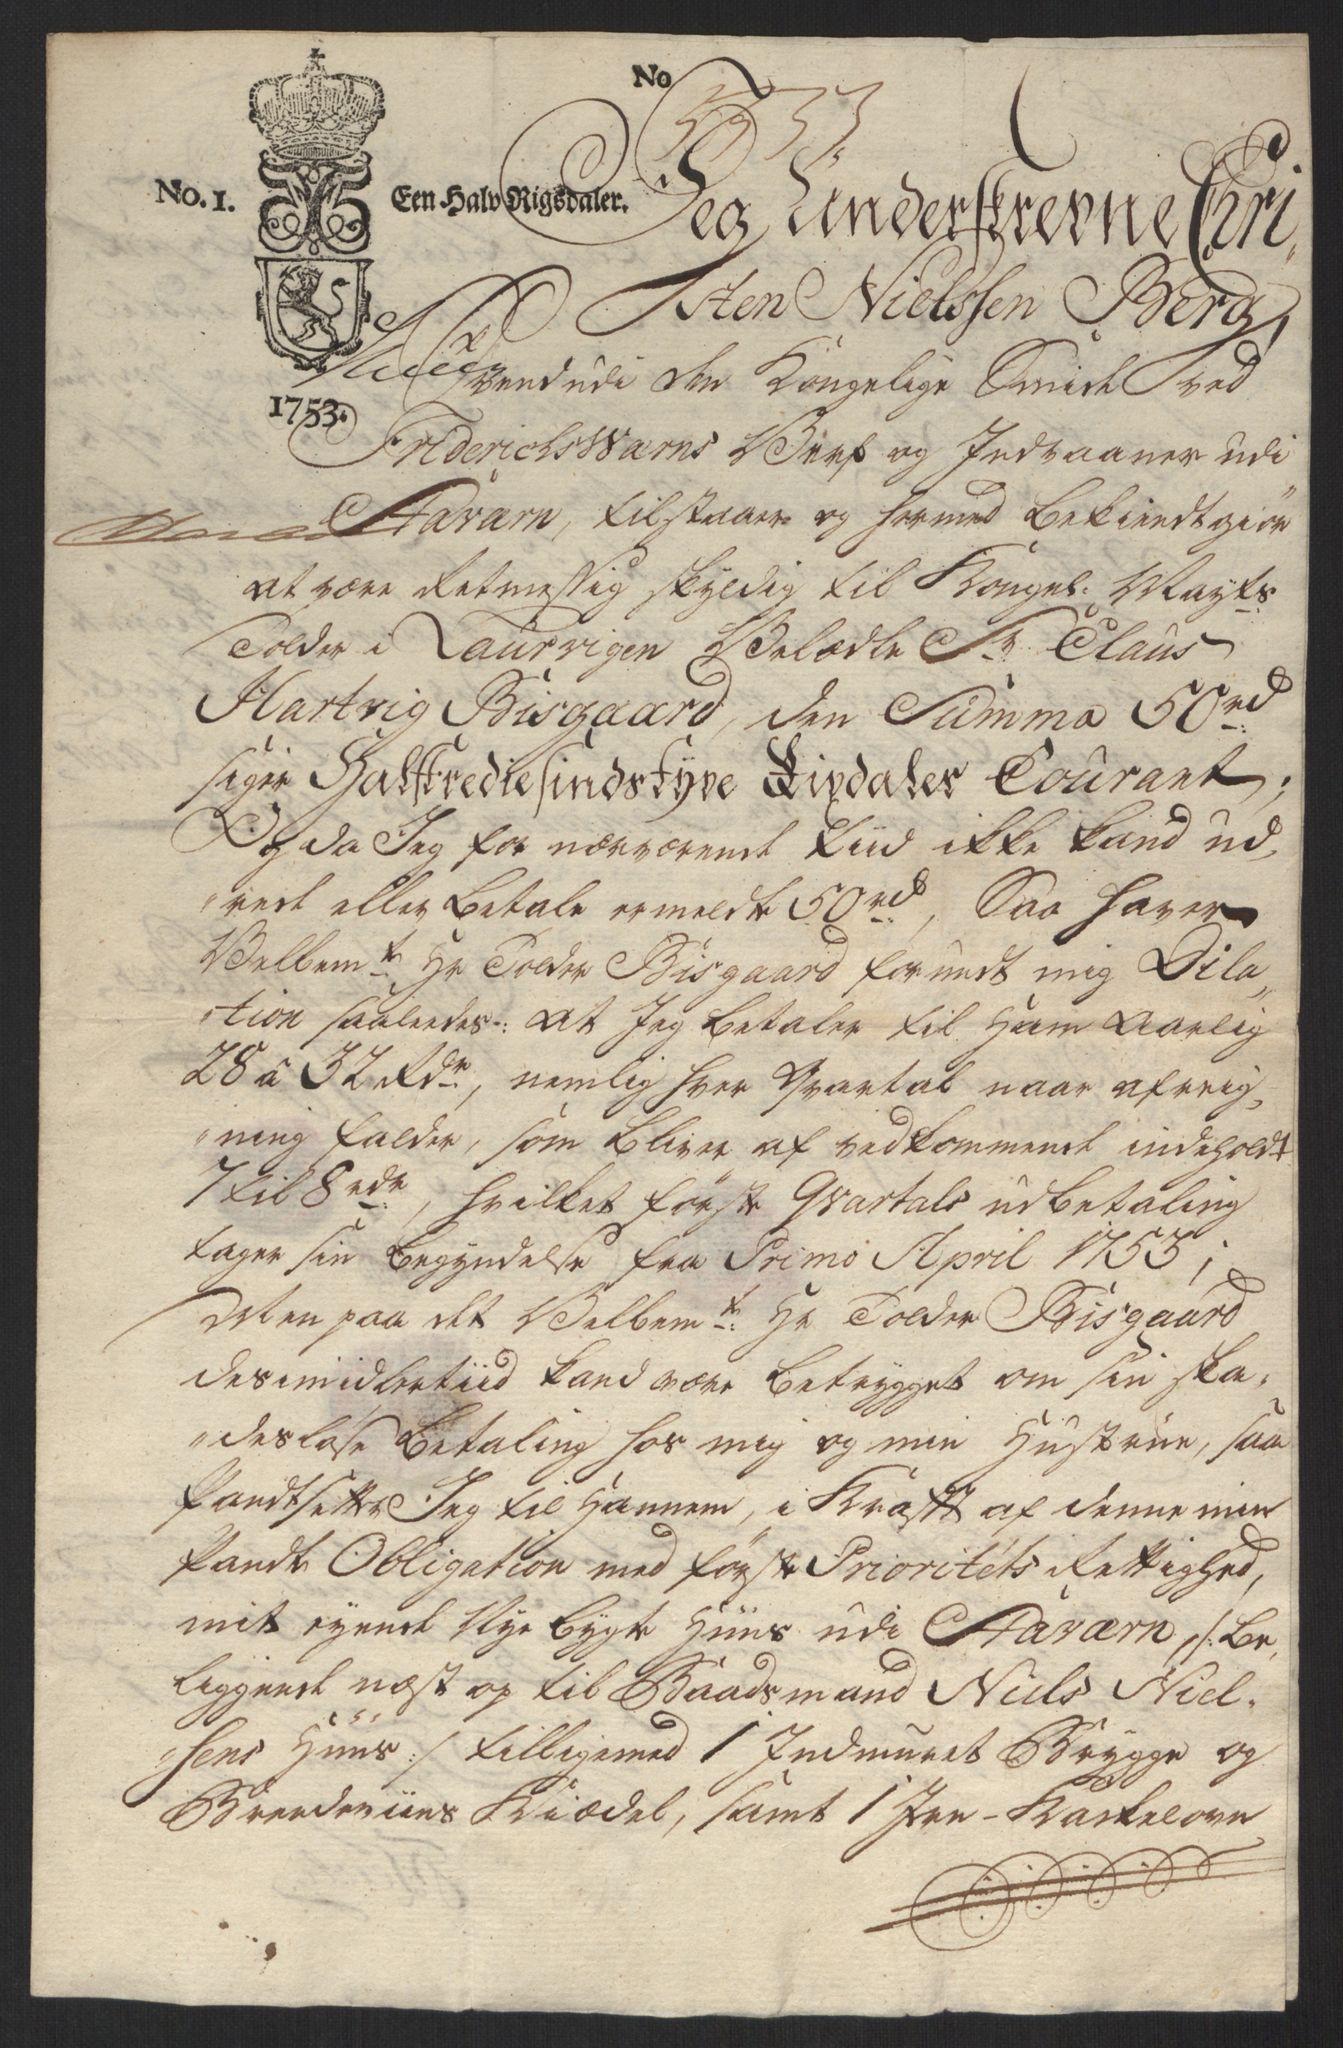 No
5733
No. 1.
Een Halv Rigsdaler.
1753.
Jeg Underskrevne Chri„
sten Nielssen Berg,
Svend udi den Kongelige Smide ved
Friderichswærns Værf og Indvaaner udi
Staværn, tilstaaer og hermed bekiendtgiør
at være Retmessig skyldig til Kongel: Mayts
Tolder i Laurvigen Velædle Sr. Claus
Hartvig Bisgaard, den Summa 50 rd
siger Halftredie sindstyve Rixdaler Courant;
Og da Jeg for nærværende tiid ikke kand ud„
„rede eller betale ermeldte 50 rd, Saa haver
Velbemte. Hr Tolder Bisgaard forundt mig Dila„
„tion saaledes: at Jeg betaler til Ham Aarlig
28 â 32 Rdr, nemlig hver Qvartal naar afreig„
„ning falder, som bliver af vedkommende indeholdt
7 til 8 rdr, hvilket første Qvartals udbetaling
tager sin begyndelse fra Primo April 1753;
Men paa det Velbemte. Hr Tolder Bisgaard
desimidlertiid kand være betrygget om sin ska„
„desløse betaling hos mig og min Hustrue, saa
Pandtsetter Jeg til Hannem, i Krafft af denne min
Pandte Obligation med første Prioritets Rettighed,
mit eyende Nye bygte Huus udi Staværn, /: be„
liggende næst op til Baadsmand Niels Niel„
„sens Huus :/ tilligemed 1 Indmuret Brygge og
Brendeviins Kiædel, samt 1 Jern-Kackelovn